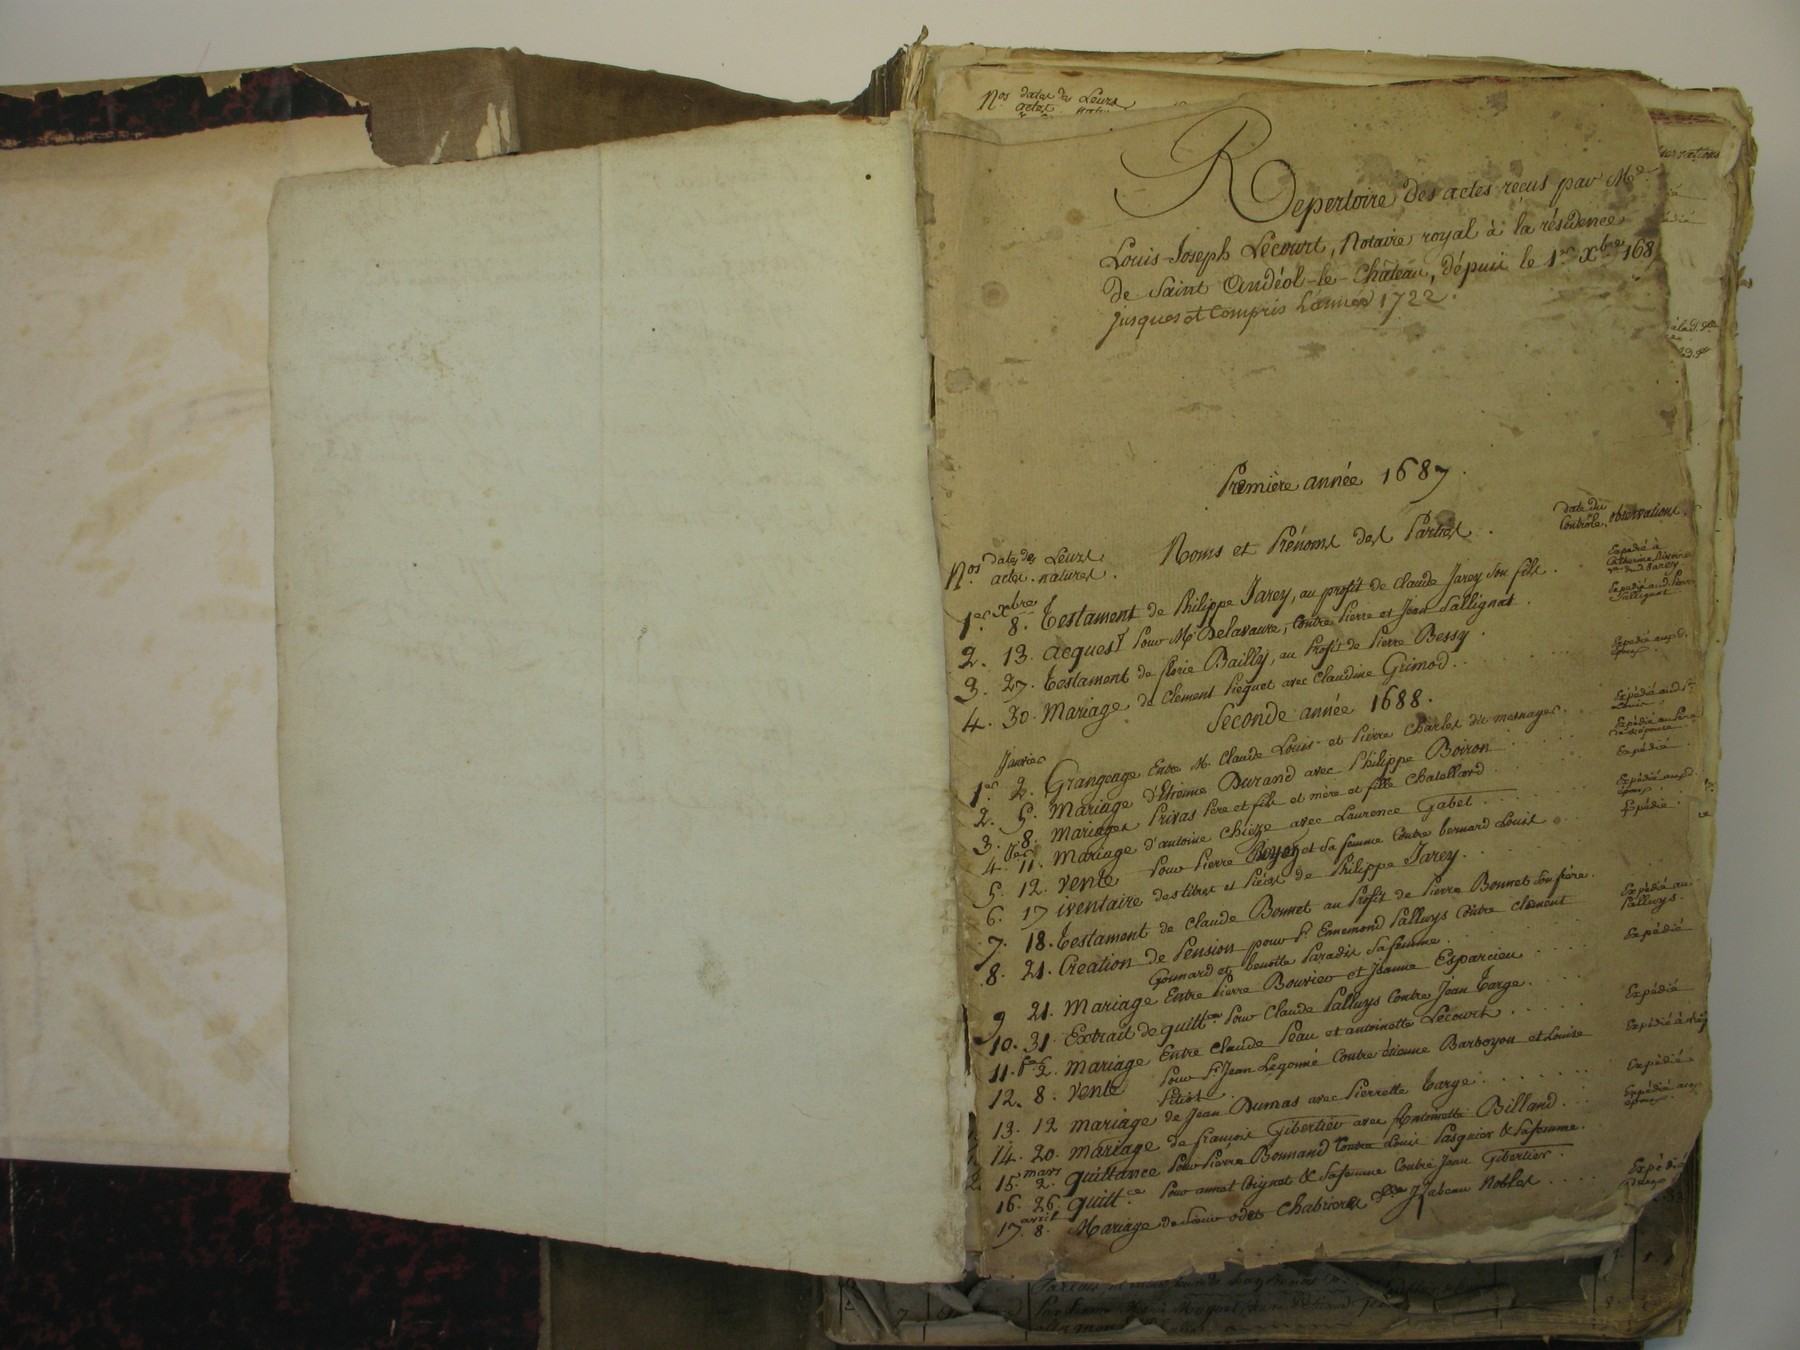 Nos dates des Leurs
actes
Repertoire des actes reçus par Me
Louis-Joseph Lecourt, Notaire royal à la résidence
de Saint Andéol-le-Château, dépuis le 1er Xbre 168
jusques et compris L'année 1722.
Première année 1687.
Nos dates des actes. Leurs natures. Noms et Prénoms des Parties. date du Contrôle. observations.
1er Xbre 8. Testament de Philippe Jarey, au profit de Claude Jarey son fils. Expédié à Catherine
2. 13. acquest Pour Mr Delavaure, contre Pierre et Jean Sallignat. Expédié aud. Pierre Sallignat.
3. 27. Testament de florie Bailly, au Profit de Pierre Bessy.
4. 30. Mariage de Clement Pieguet avec Claudine Grimod. Expédié auxd. époux.
Seconde année 1688.
Janvier
1er 2. Grangeage Entre Mr Claude Louis et Pierre Charles dit mesnager. Expédié aud. Sr Louis
2. 5. Mariage d'Etienne Durand avec Philippe Boiron Expédié au Père
3. 8. mariages Privas Père et fils et mère et fille Chatellard Expédié
4. 11. mariage d'antoine Chieze avec Laurence Gabet Expédié auxd. époux.
5. 12. vente Pour Pierre Boyer et sa femme Contre bernard Louis Expédié.
6. 17 inventaire des titres et Pièces de Philippe Jarey.
7. 18. Testament de Claude Bonnet au Profit de Pierre Bonnet son frère.
8. 21. Création de Pension pour Sr Ennemond Palluys Contre clement Expédié au Palluys.
Gonnard et benoite Paradis sa femme.
9 21. mariage Entre Pierre Bouvier et Jeanne Esparcieu Expédié
10. 31. Extrait de quittce Pour Claude Palluys Contre Jean Targe.
11. fer 2. mariage Entre Claude Peau et antoinette Lecourt Expédié
12. 8. vente Pour Sr Jean Legonné Contre étienne Barboyon et Louise Expédié à
Pitiot
13. 12 mariage de Jean Dumas avec Pierrette Targe Expédié
14. 20. mariage de françois Gibertier avec Antoinette Billand Expédié aux époux.
15. mars 2. quittance Pour Pierre Bonnand Contre Louis Pasquier & sa femme.
16. 26. quittce Pour annet Coignet & sa femme Contre Jean Gibertier.
17. avril 8. Mariage de Sieur odet Chabriere & Dlle Izabeau Nobles Expédié